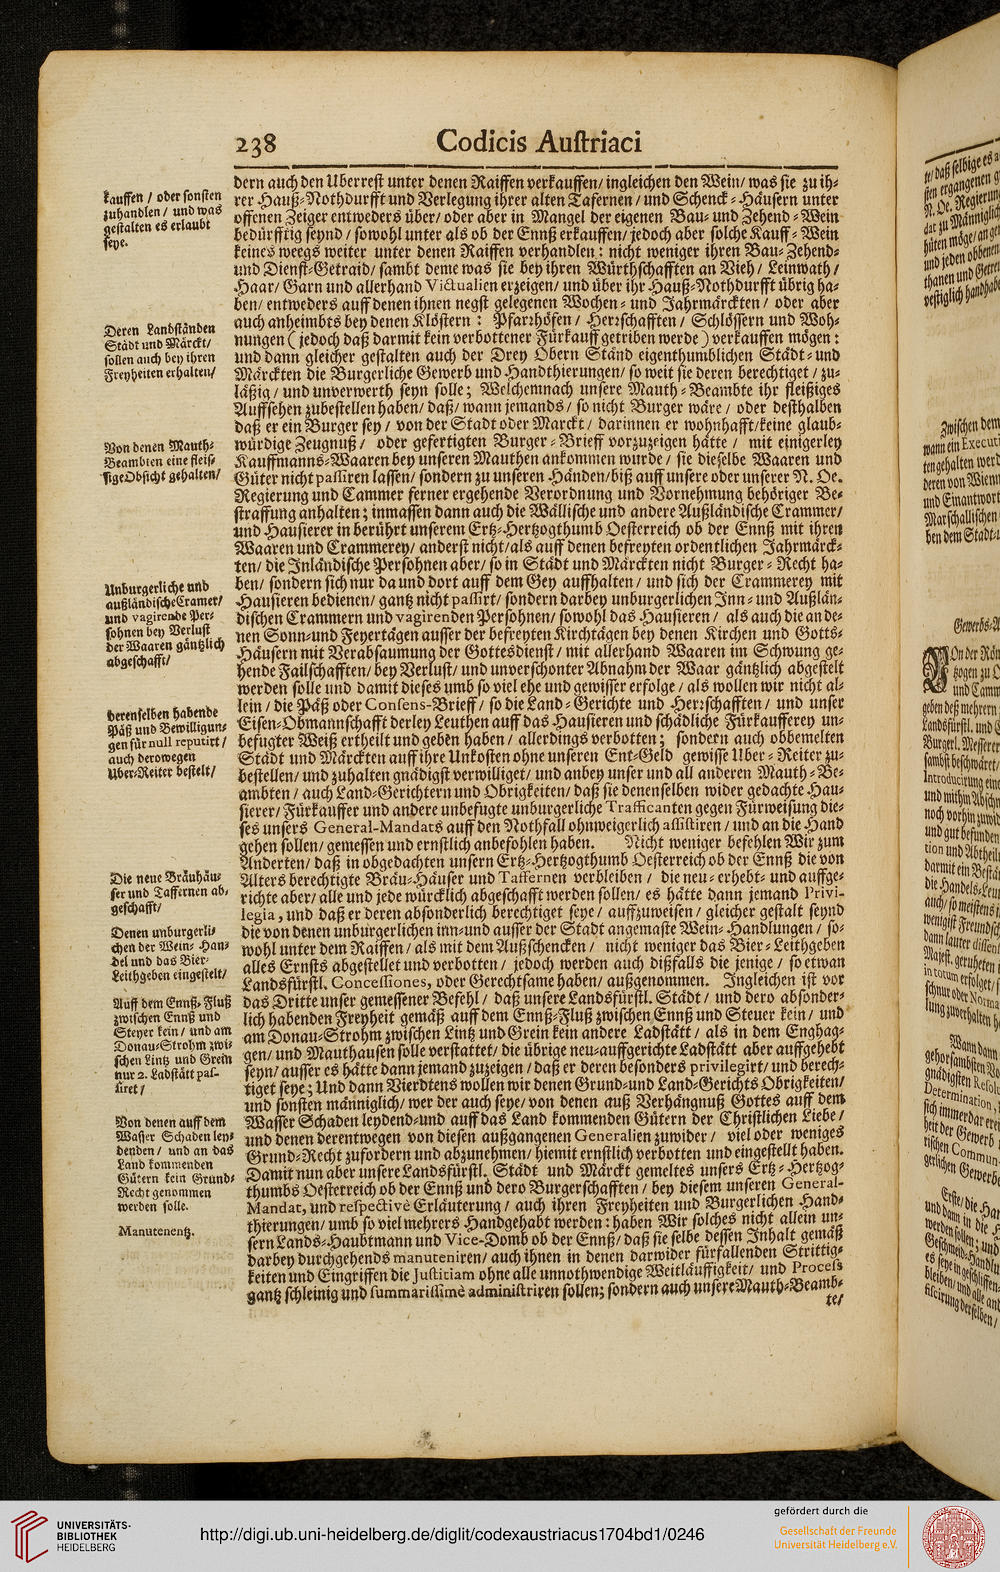 238 Codicis Auſtriaci
kauffen / oder ſonſten
zuhandlen / und was
geſtalten es erlaubt
ſeye.
Deren Landſtänden
Städt und Märckt/
ſollen auch bey ihren
Freyheiten erhalten/
Von denen Mauth-
Beambten eine fleiſ-
ſige Obſicht gehalten/
Unburgerliche und
außländiſche Cramer/
und vagirende Per-
ſohnen bey Verluſt
der Waaren gäntzlich
abgeſchafft/
derenſelben habende
Päß und Bewilligun-
gen für null reputirt /
auch derowegen
Uber-Reiter beſtelt/
Die neue Bräuhäu-
ſer und Taffernen ab-
geſchafft/
Denen unburgerli-
chen der Wein- Han-
del und das Bier-
Leithgeben eingeſtelt/
Auff dem Ennß-Fluß
zwiſchen Ennß und
Steyer kein / und am
Donau-Strohm zwi-
ſchen Lintz und Grein
nur 2. Ladſtätt paſ-
ſiret /
Von denen auff dem
Waſſer Schaden ley-
denden / und an das
Land kommenden
Gütern kein Grund-
Recht genommen
werden ſolle.
Manutenentz.
dern auch den Uberreſt unter denen Raiffen verkauffen/ ingleichen den Wein/ was ſie zu ih-
rer Hauß-Nothdurfft und Verlegung ihrer alten Tafernen / und Schenck-Häuſern unter
offenen Zeiger entweders über/ oder aber in Mangel der eigenen Bau- und Zehend-Wein
bedürfftig ſeynd / ſowohl unter als ob der Ennß erkauffen/ jedoch aber ſolche Kauff-Wein
keines weegs weiter unter denen Raiffen verhandlen: nicht weniger ihren Bau-Zehend-
und Dienſt-Getraid/ ſambt deme was ſie bey ihren Würthſchafften an Vieh / Leinwath /
Haar/ Garn und allerhand Victualien erzeigen/ und über ihr Hauß-Nothdurfft übrig ha-
ben/ entweders auff denen ihnen negſt gelegenen Wochen- und Jahrmärckten / oder aber
auch anheimbts bey denen Klöſtern : Pfarrhöfen / Herrſchafften / Schlöſſern und Woh-
nungen ( jedoch daß darmit kein verbottener Fürkauff getriben werde ) verkauffen mögen:
und dann gleicher geſtalten auch der Drey Obern Ständ eigenthumblichen Städt- und
Märckten die Burgerliche Gewerb und Handthierungen/ ſo weit ſie deren berechtiget / zu-
läßig / und unverwerth ſeyn ſolle; Welchemnach unſere Mauth-Beambte ihr fleißiges
Auffſehen zubeſtellen haben/ daß/ wann jemands / ſo nicht Burger wäre / oder deſthalben
daß er ein Burger ſey / von der Stadt oder Marckt / darinnen er wohnhafft/ keine glaub-
würdige Zeugnuß / oder gefertigten Burger-Brieff vorzuzeigen hätte / mit einigerley
Kauffmanns-Waaren bey unſeren Mauthen ankommen wurde / ſie dieſelbe Waaren und
Güter nicht paſſiren laſſen/ ſondern zu unſeren Händen/ biß auff unſere oder unſerer N. Oe.
Regierung und Cammer ferner ergehende Verordnung und Vornehmung behöriger Be-
ſtraffung anhalten; inmaſſen dann auch die Wälliſche und andere Außländiſche Crammer/
und Hauſierer in berührt unſerem Ertz-Hertzogthumb Oeſterreich ob der Ennß mit ihren
Waaren und Crammerey/ anderſt nicht/ als auff denen befreyten ordentlichen Jahrmärck-
ten/ die Inländiſche Perſohnen aber/ ſo in Städt und Märckten nicht Burger-Recht ha-
ben/ ſondern ſich nur da und dort auff dem Gey auffhalten / und ſich der Crammerey mit
Hauſieren bedienen/ gantz nicht paſſirt/ ſondern darbey unburgerlichen Inn- und Außlän-
diſchen Crammern und vagirenden Perſohnen/ ſowohl das Hauſieren / als auch die an de-
nen Sonn-und Feyertägen auſſer der befreyten Kirchtägen bey denen Kirchen und Gotts-
Häuſern mit Verabſaumung der Gottesdienſt / mit allerhand Waaren im Schwung ge-
hende Failſchafften/ bey Verluſt/ und unverſchonter Abnahm der Waar gäntzlich abgeſtelt
werden ſolle und damit dieſes umb ſo viel ehe und gewiſſer erfolge / als wollen wir nicht al-
lein / die Päß oder Conſens-Brieff / ſo die Land-Gerichte und Herrſchafften / und unſer
Eiſen-Obmannſchafft derley Leuthen auff das Hauſieren und ſchädliche Fürkaufferey un-
befugter Weiß ertheilt und geben haben / allerdings verbotten; ſondern auch obbemelten
Städt und Märckten auff ihre Unkoſten ohne unſeren Ent-Geld gewiſſe Uber-Reiter zu-
beſtellen/ und zuhalten gnädigſt verwilliget/ und anbey unſer und all anderen Mauth-Be-
ambten / auch Land-Gerichtern und Obrigkeiten/ daß ſie denenſelben wider gedachte Hau-
ſierer/ Fürkauffer und andere unbefugte unburgerliche Trafficanten gegen Fürweiſung die-
ſes unſers General-Mandats auff den Nothfall ohnweigerlich aſſiſtiren / und an die Hand
gehen ſollen/ gemeſſen und ernſtlich anbefohlen haben. Nicht weniger befehlen Wir zum
Anderten/ daß in obgedachten unſern Ertz-Hertzogthumb Oeſterreich ob der Ennß die von
Alters berechtigte Bräu-Häuſer und Taffernen verbleiben / die neu-erhebt- und auffge-
richte aber/ alle und jede würcklich abgeſchafft werden ſollen/ es hätte dann jemand Privi-
legia, und daß er deren abſonderlich berechtiget ſeye/ auffzuweiſen / gleicher geſtalt ſeynd
die von denen unburgerlichen inn-und auſſer der Stadt angemaſte Wein-Handlungen / ſo-
wohl unter dem Raiffen / als mit dem Außſchencken / nicht weniger das Bier-Leithgeben
alles Ernſts abgeſtellet und verbotten / jedoch werden auch dißfalls die jenige / ſo etwan
Landsfürſtl. Conceſſiones, oder Gerechtſame haben/ außgenommen. Ingleichen iſt vor
das Dritte unſer gemeſſener Befehl / daß unſere Landsfürſtl. Städt / und dero abſonder-
lich habenden Freyheit gemäß auff dem Ennß-Fluß zwiſchen Ennß und Steuer kein / und
am Donau-Strohm zwiſchen Lintz und Grein kein andere Ladſtätt / als in dem Enghag-
gen/ und Mauthauſen ſolle verſtattet/ die übrige neu-auffgerichte Ladſtätt aber auffgehebt
ſeyn/ auſſer es hätte dann jemand zuzeigen / daß er deren beſonders privilegirt/ und berech-
tiget ſeye; Und dann Vierdtens wollen wir denen Grund-und Land-Gerichts Obrigkeiten/
und ſonſten männiglich/ wer der auch ſeye/ von denen auß Verhängnuß Gottes auff dem
Waſſer Schaden leydend-und auff das Land kommenden Gütern der Chriſtlichen Liebe /
und denen derentwegen von dieſen außgangenen Generalien zuwider / viel oder weniges
Grund-Recht zufordern und abzunehmen/ hiemit ernſtlich verbotten und eingeſtellt haben.
Damit nun aber unſere Landsfürſtl. Städt und Märckt gemeltes unſers Ertz-Hertzog-
thumbs Oeſterreich ob der Ennß und dero Burgerſchafften / bey dieſem unſeren General-
Mandat, und reſpectivè Erläuterung / auch ihren Freyheiten und Burgerlichen Hand-
thierungen/ umb ſo viel mehrers Handgehabt werden: haben Wir ſolches nicht allein un-
ſern Lands-Haubtmann und Vice-Domb ob der Ennß/ daß ſie ſelbe deſſen Inhalt gemäß
darbey durchgehends manuteniren/ auch ihnen in denen darwider fürfallenden Strittig-
keiten und Eingriffen die Juſtitiam ohne alle unnothwendige Weitläuffigkeit/ und Proceſs
gantz ſchleinig und ſummariſſimè adminiſtriren ſollen; ſondern auch unſere Mauth-Beamb-
te/
UNIVERSITÄTS-
BIBLIOTHEK
HEIDELBERG
http://digi.ub.uni-heidelberg.de/diglit/codexaustriacus1704bd1/0246
gefördert durch die
Gesellschaft der Freunde
Universität Heidelberg e.V.